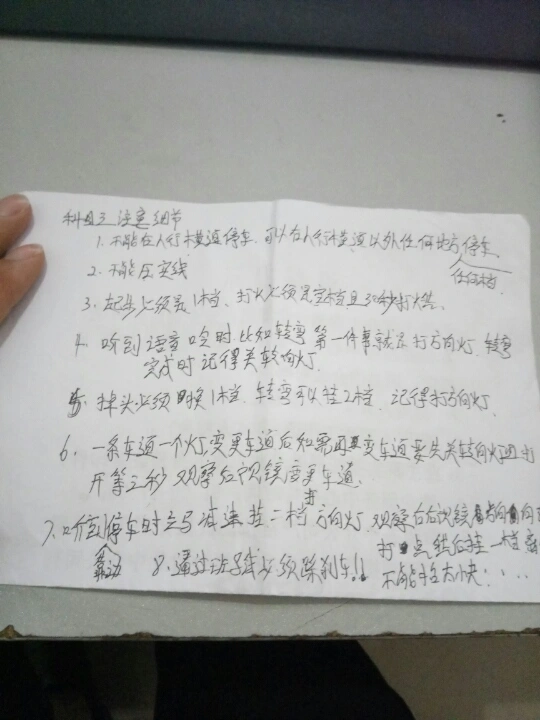 科目三注意细节
1. 不能在人行横道停车, 可以在人行横道以外任何地方停车
任何档
2. 不能压实线
3. 起步必须是1档、打火必须是空档且30秒打火
4. 听到语音 时, 比如转弯 第一件事就是打方向灯. 转弯
完成时记得关转向灯.
5. 掉头必须 换1档. 转弯可以挂2档. 记得打方向灯.
6. 一条车道一个灯, 变更车道后如需再变车道要先关转向灯
开等三秒 观察后视镜变更车道.
7. 停车时立马减速挂二档 打方向灯. 观察右后视镜 方向 向
靠边
打 点然后挂一档
不能 太快. . . .
8. 通过 线必须踩刹车!!